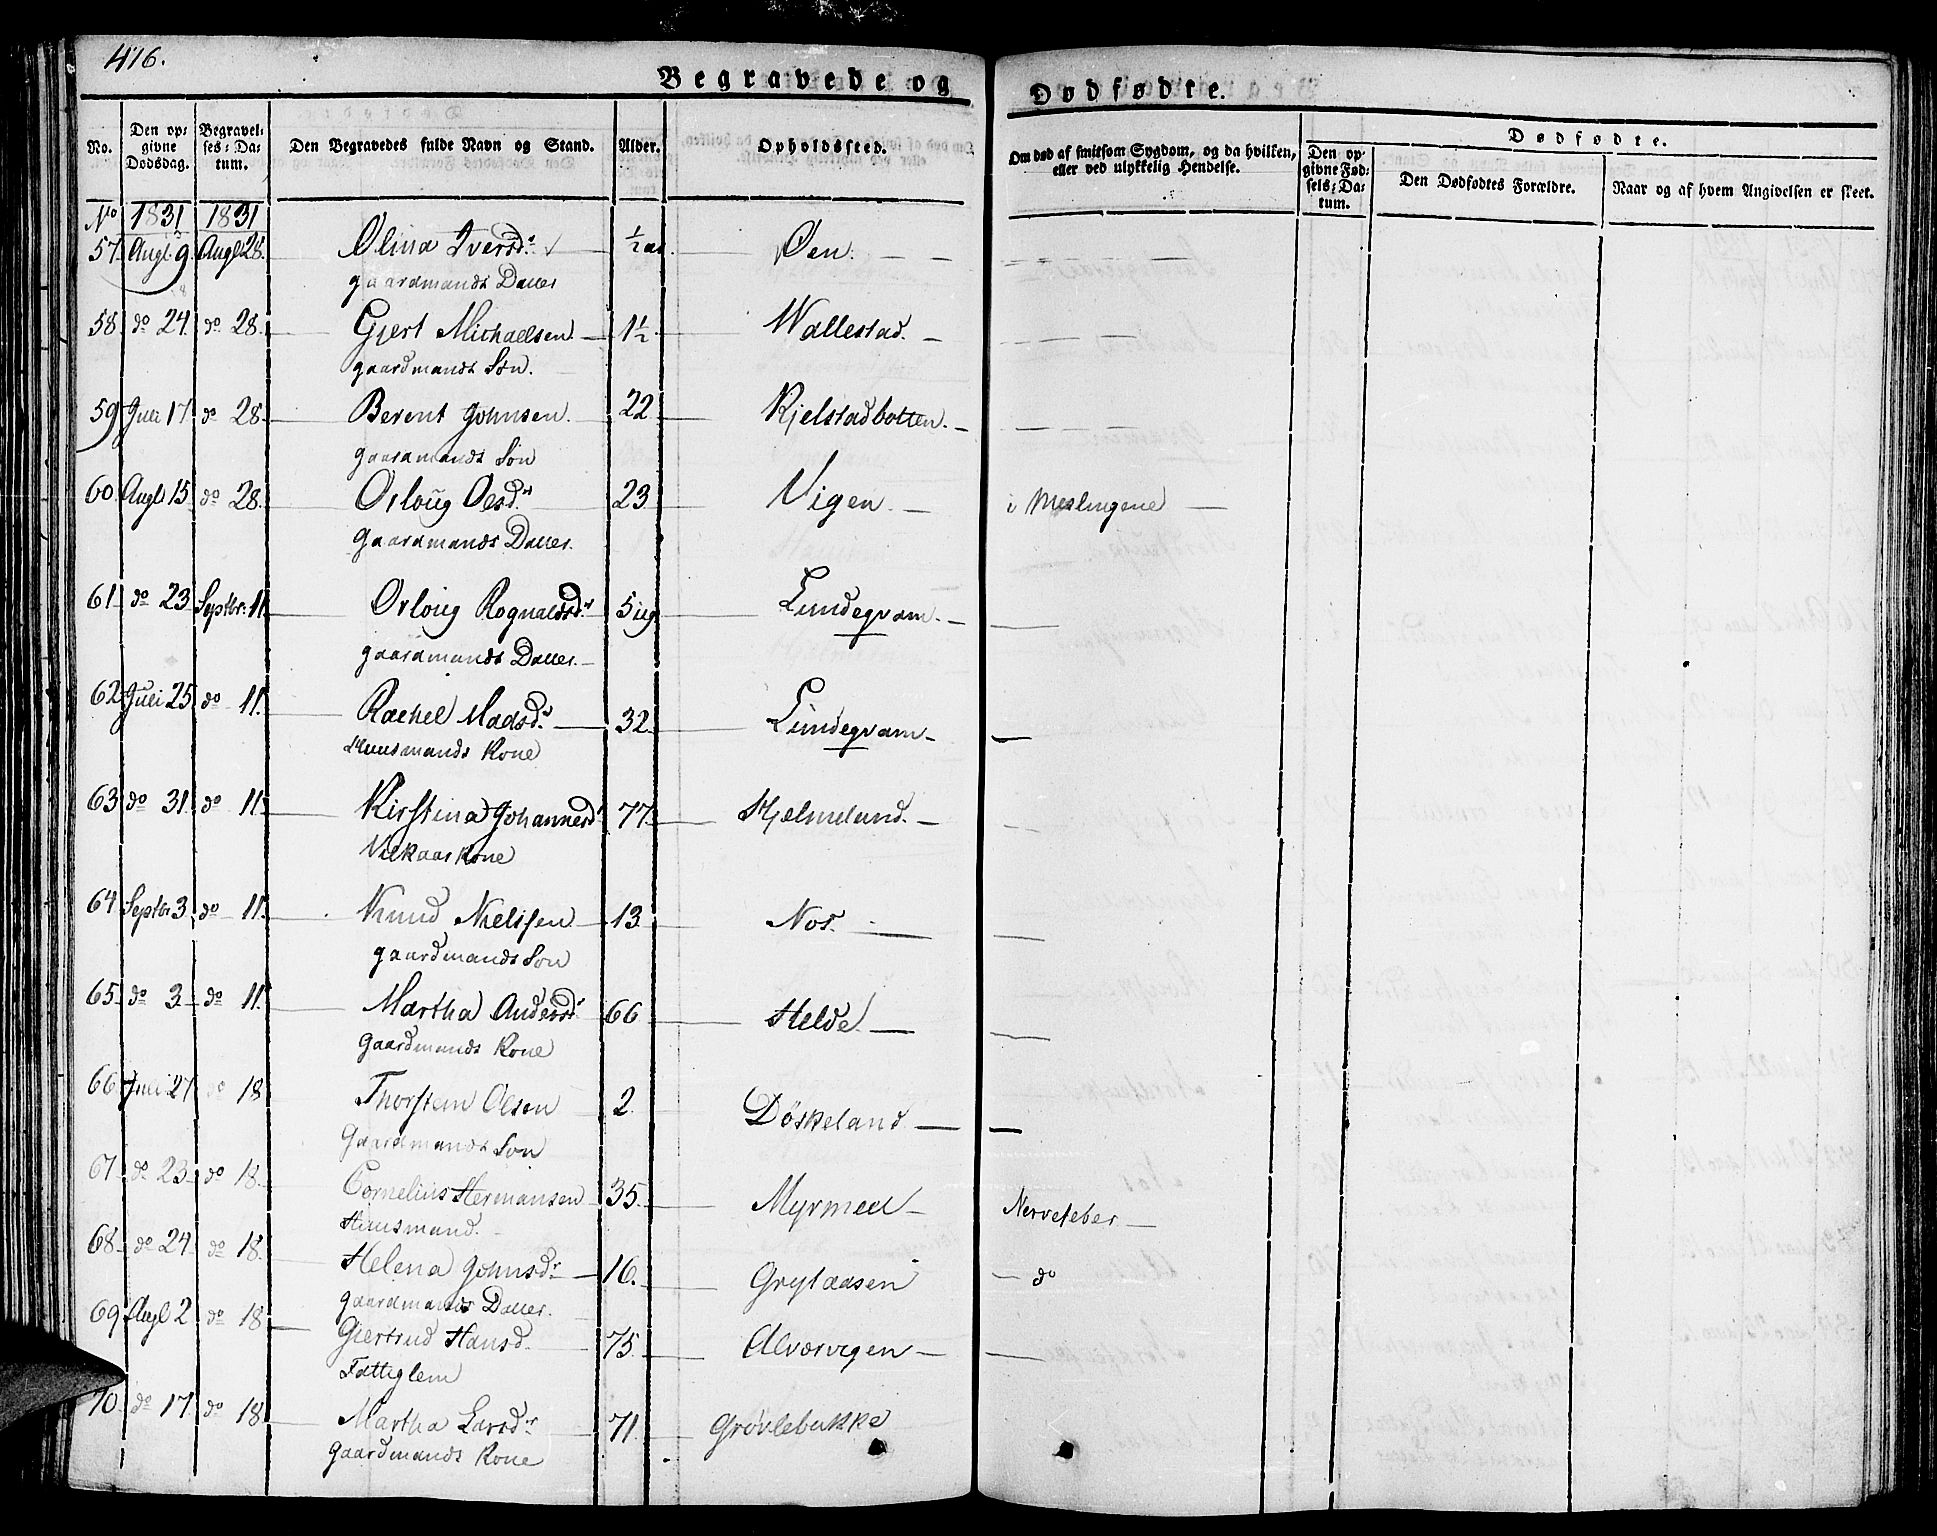 416.
Begravede og Dødfødte.
No.
Den opgivne Dødsdag.
Begravelses-Datum.
Den Begravedes fulde Navn og Stand.
Alder.
Opholdssted.
Om død af smitsom Sygdom, og da hvilken, eller ved ulykkelig Hendelse.
Dødfødte.
Den opgivne Fødsels-Datum.
Den Dødfødtes Forældre.
Naar og af hvem Angivelsen er skeet.
No 1831 1831
57 Augt 9. Augt 28. Olina Iversdr ½ aar Øen.
gaardmands Datter
58 do 24 do 28. Gjert Michaelsen 1½ Wallestad.
gaardmands Søn.
59 Juli 17 do 28. Berent Johnsen. 22 Kjelstadbotten.
gaardmands Søn
60. Augt 15. do 28. Orloug Olsdr 23 Vigen. i Meslingene
Gaardmands Datter.
61 do 23 Septbr. 11 Orloug Rognaldsdr 5 ug Lundeqvam.
gaardmands Datter.
62 Juli 25 do 11. Rachel Madsdr 32 Lundeqvam
Huusmands Kone
63 do 31. do 11. Kirstina Johannesdr 77. Hjelmeland.
Vilkaars Kone
64 Septbr 3. do 11. Knud Nielssen 13 Nos.
gaardmands Søn
65 do 3 do 11. Martha Andersdr 66 Helde
Gaardmands Kone
66 Juli 27 do 18 Thorstein Olsen 2. Døskeland
Gaardmands Søn
67 do 23. do 18. Cornelius Hermansen 35. Myrmed Nervefeber
Huusmand.
68 do 24 do 18. Helena Johnsdr 16. Grytaasen do
gaardmands Datter.
69 Augt 2 do 18 Giertrud Hansd. 75. Alvorvigen
Fattiglem
70. do 17. do 18 Martha Larsdr 71 Grøvlebakke
Gaardmands Kone